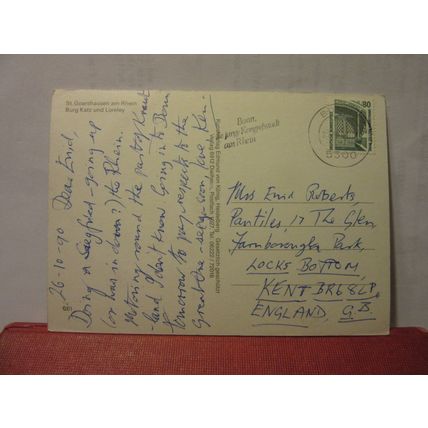 St. Goarshausen am Rhein
Burg Katz und Loreley
26-10-90 Dear Enid,
Doing a Siegfried - going up
(or was it down?) the Rhein.
Motoring around the parts of
-land I don't know. Going in to Bonn
tomorrow to pay respects to the
Great One - deegueson, love, Ken.
Bonn,
Kongreßstadt
am Rhein
5300
80
Mrs Enid Roberts
Pantiles, 17 The Glen,
Farnborough Park,
LOCKS BOTTOM,
KENT BR6 8LP,
ENGLAND, G.B.